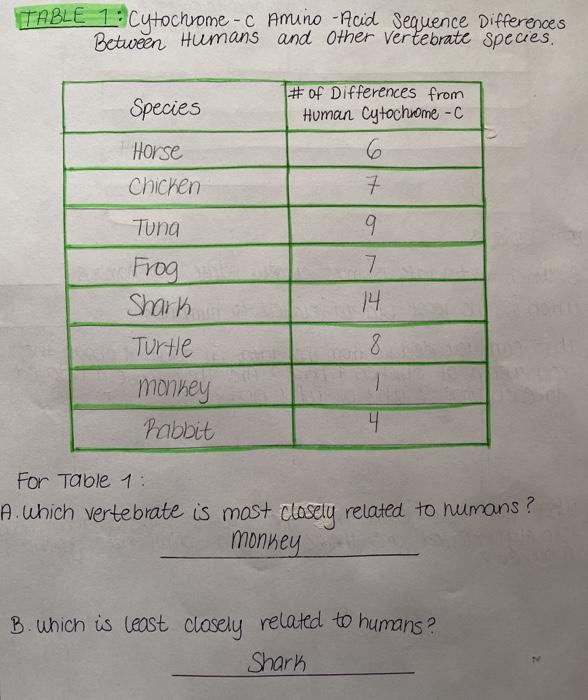 TABLE 1: Cytochrome-c Amino-Acid Sequence Differences
Between Humans and other vertebrate species.
Species # of Differences from Human Cytochrome-C
Horse 6
Chicken 7
Tuna 9
Frog 7
Shark 14
Turtle 8
monkey 1
Rabbit 4
For Table 1:
A. which vertebrate is most closely related to humans?
monkey
B. which is least closely related to humans?
Shark